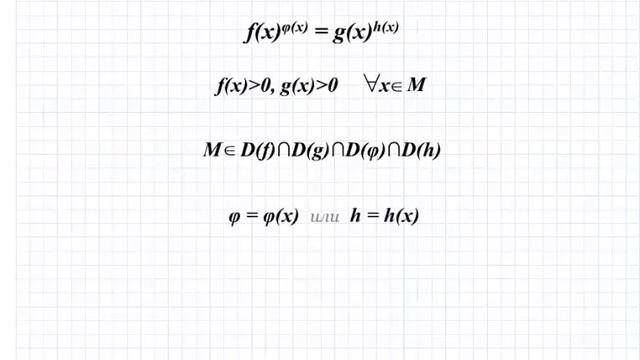 f(x)^φ(x) = g(x)^h(x)
f(x)>0, g(x)>0 ∀x∈ M
M∈ D(f)∩D(g)∩D(φ)∩D(h)
φ = φ(x) или h = h(x)